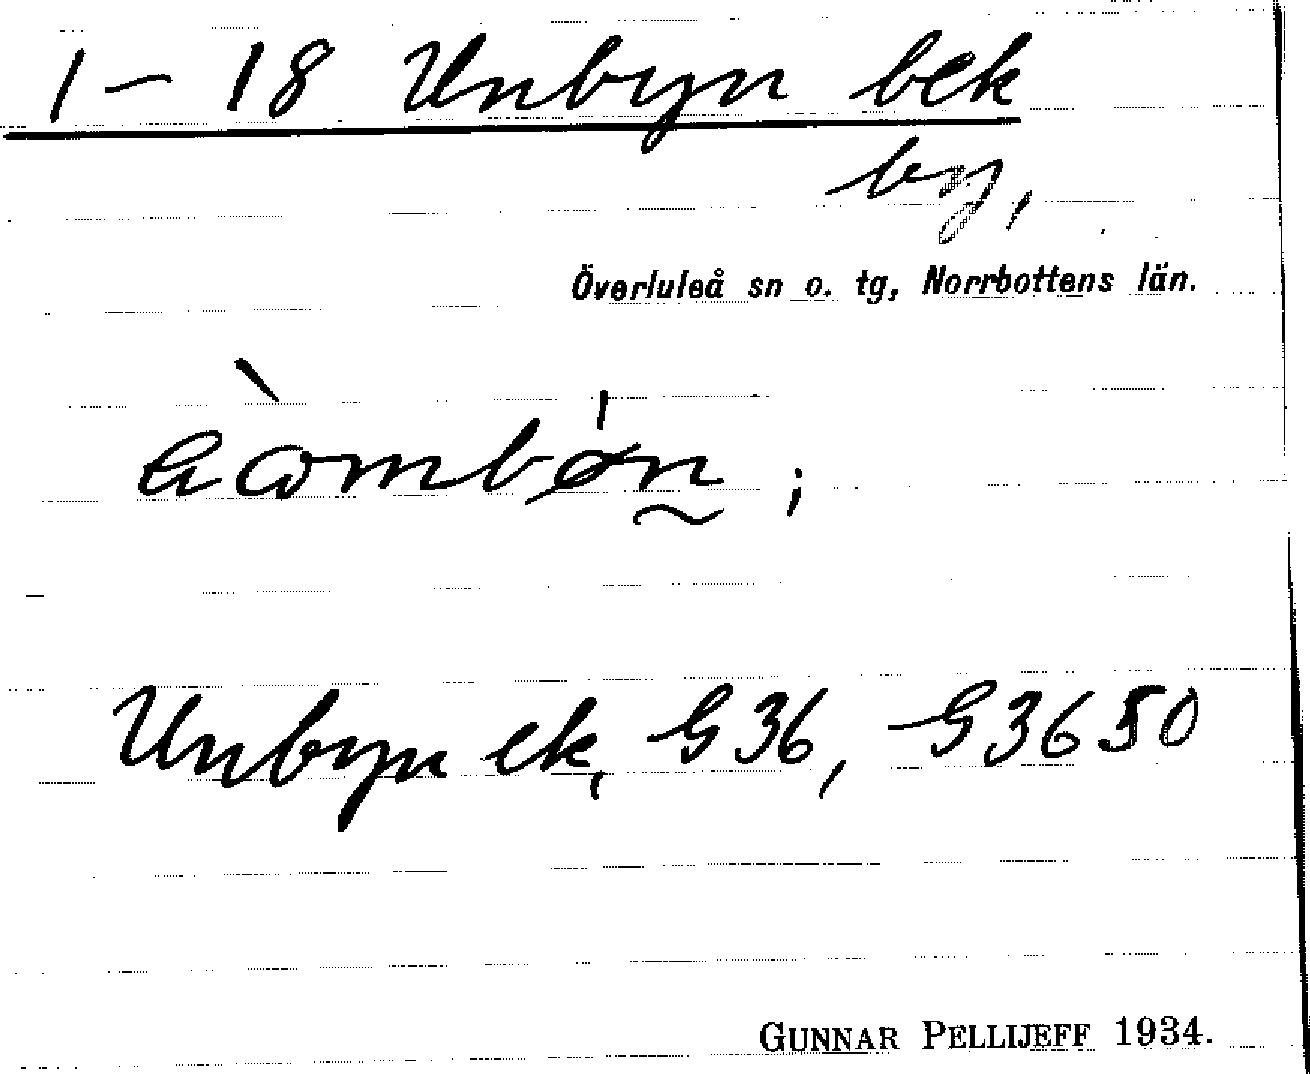 1 – 18 Unbyn bek
by,
Överluleå sn o. tg, Norrbottens län.
Unbyn ek, G36, G3650
GUNNAR PELLIJEFF 1934.